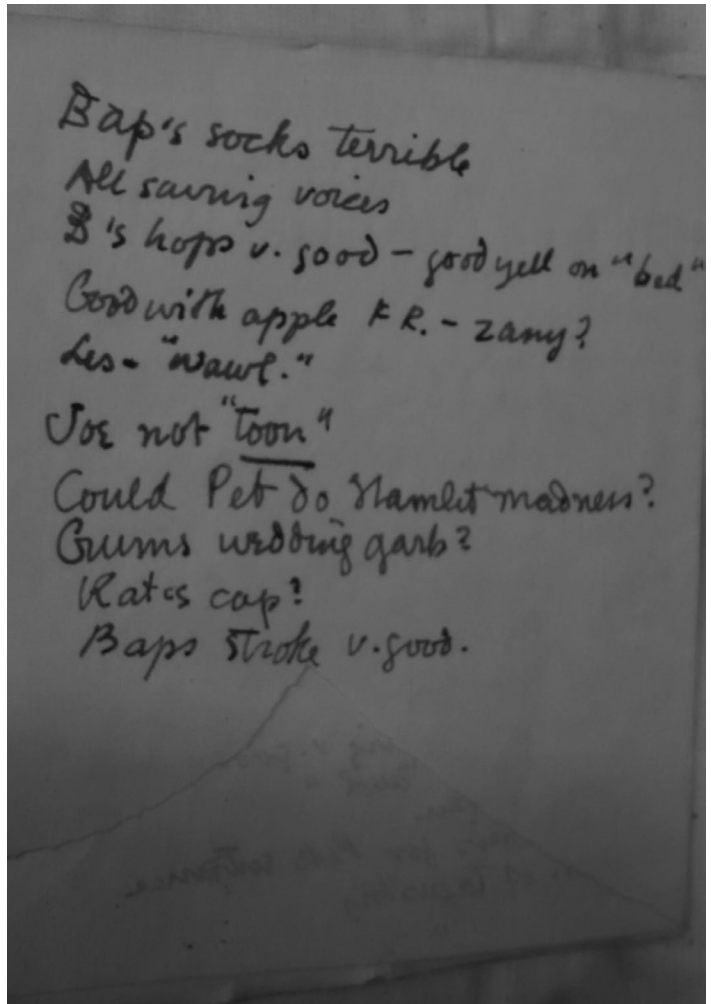 Bap's socks terrible
All saving voices
B's hops v. good - good yell on "bed"
Good with apple K R. - zany?
Les - "Nawl."
Joe not "toon"
Could Pet do Hamlet madness?
Grums wedding garb?
Kates cap?
Baps stroke v. good.